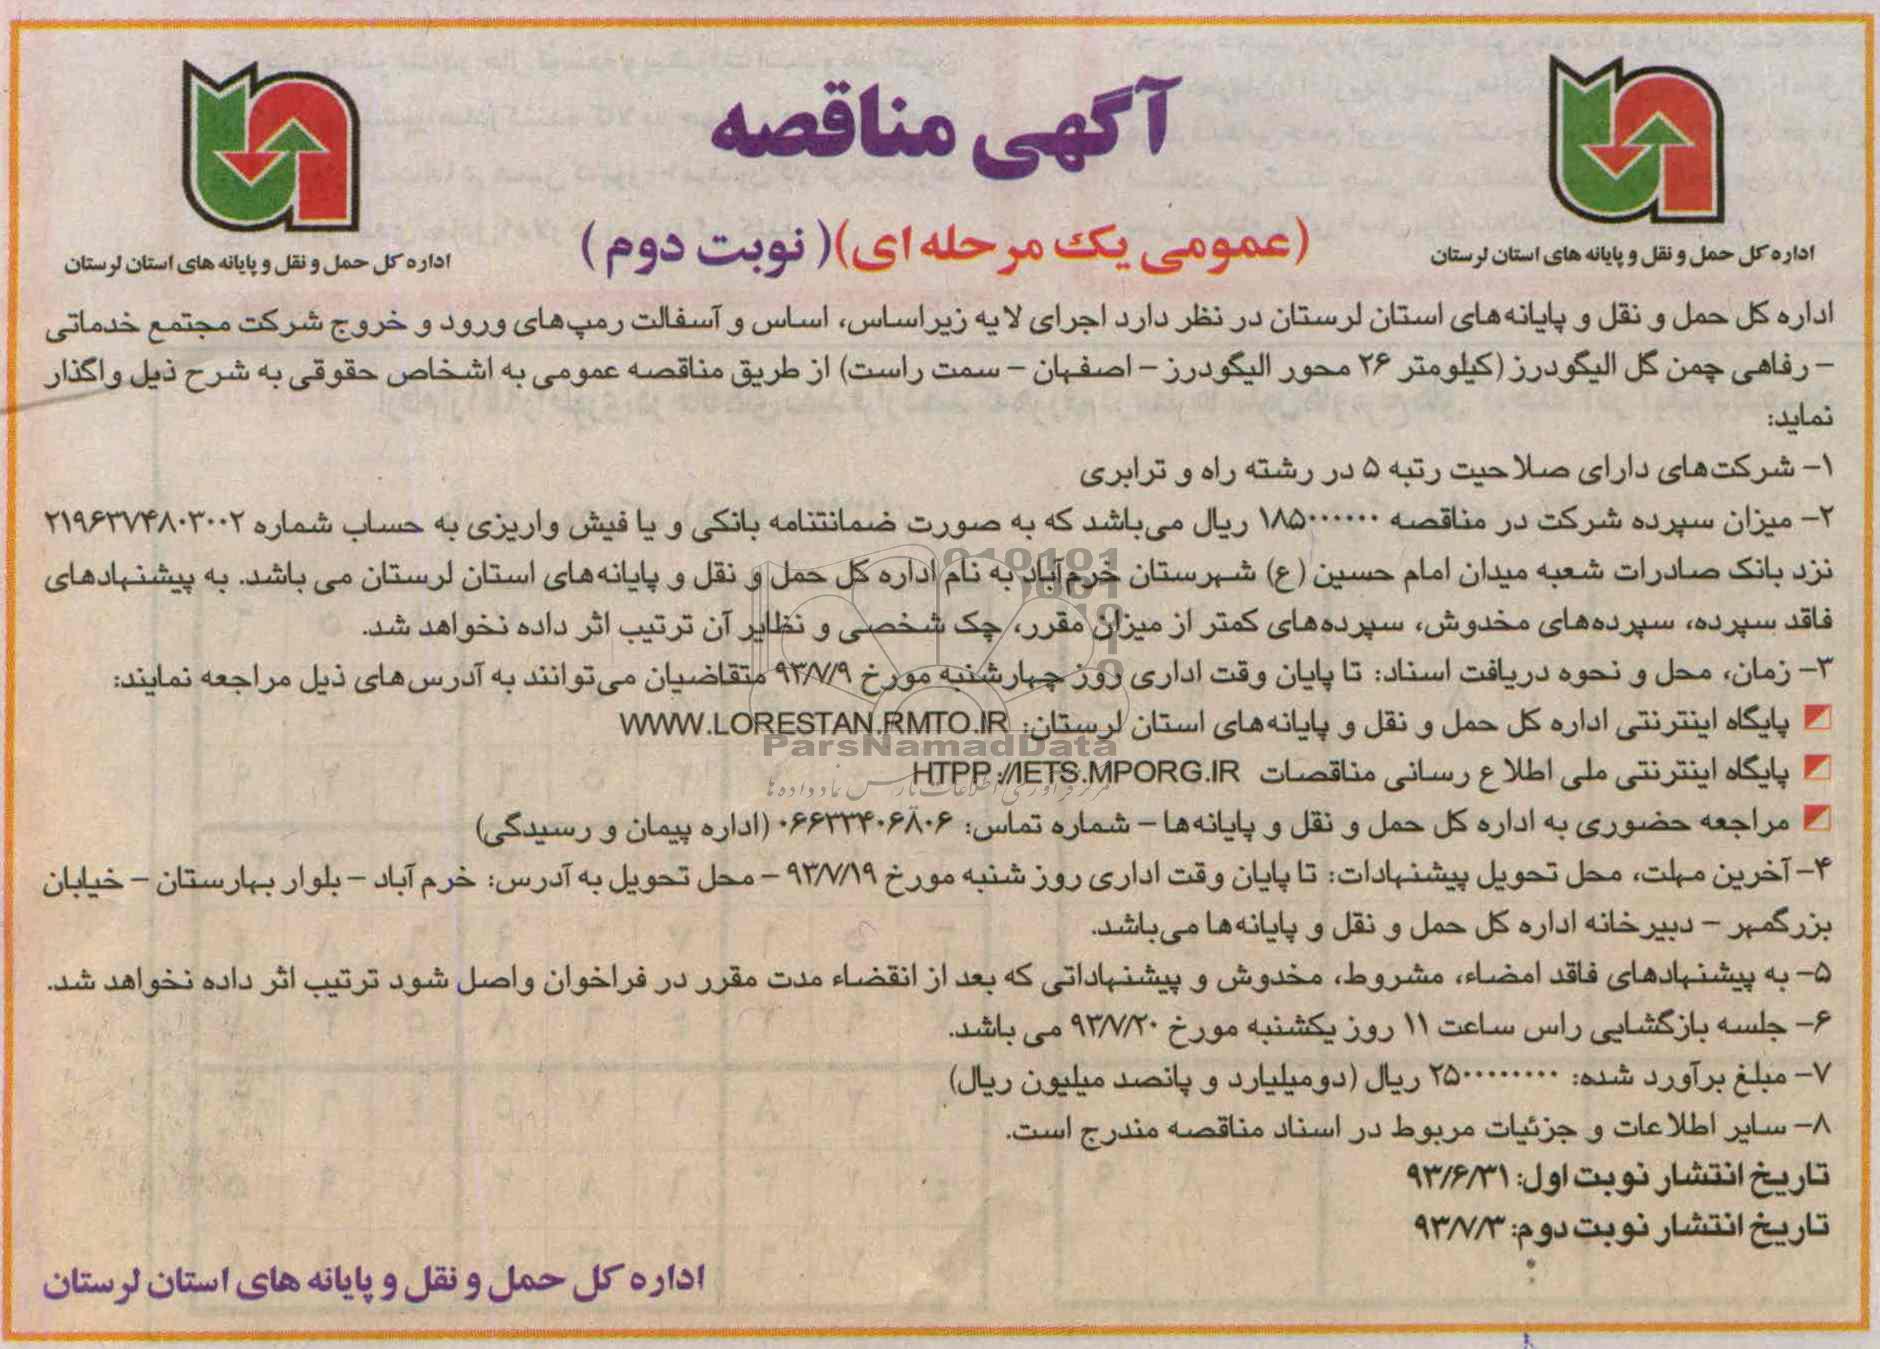 آگهی مناقصه
(عمومی یک مرحله ای)(نوبت دوم)
اداره کل حمل و نقل و پایانه های استان لرستان
اداره کل حمل و نقل و پایانه های استان لرستان
اداره کل حمل و نقل و پایانه‌های استان لرستان در نظر دارد اجرای لایه زیراساس، اساس و آسفالت رمپ‌های ورود و خروج شرکت مجتمع خدماتی
– رفاهی چمن گل الیگودرز (کیلومتر ۲۶ محور الیگودرز – اصفهان – سمت راست) از طریق مناقصه عمومی به اشخاص حقوقی به شرح ذیل واگذار
نماید:
۱– شرکت‌های دارای صلاحیت رتبه ۵ در رشته راه و ترابری
۲– میزان سپرده شرکت در مناقصه ۱۸۵۰۰۰۰۰۰ ریال می‌باشد که به صورت ضمانتنامه بانکی و یا فیش واریزی به حساب شماره ۲۱۹۶۳۷۴۸۰۳۰۰۲
نزد بانک صادرات شعبه میدان امام حسین (ع) شهرستان خرم‌آباد به نام اداره کل حمل و نقل و پایانه‌های استان لرستان می باشد. به پیشنهادهای
فاقد سپرده، سپرده‌های مخدوش، سپرده‌های کمتر از میزان مقرر، چک شخصی و نظایر آن ترتیب اثر داده نخواهد شد.
۳– زمان، محل و نحوه دریافت اسناد: تا پایان وقت اداری روز چهارشنبه مورخ ۹۳/۷/۹ متقاضیان می‌توانند به آدرس‌های ذیل مراجعه نمایند:
پایگاه اینترنتی اداره کل حمل و نقل و پایانه‌های استان لرستان: WWW.LORESTAN.RMTO.IR
ParsNamadData
پایگاه اینترنتی ملی اطلاع رسانی مناقصات HTPP://IETS.MPORG.IR
مراجعه حضوری به اداره کل حمل و نقل و پایانه‌ها – شماره تماس: ۰۶۶۳۳۴۰۶۸۰۶ (اداره پیمان و رسیدگی)
۴– آخرین مهلت، محل تحویل پیشنهادات: تا پایان وقت اداری روز شنبه مورخ ۹۳/۷/۱۹ – محل تحویل به آدرس: خرم آباد – بلوار بهارستان – خیابان
بزرگمهر – دبیرخانه اداره کل حمل و نقل و پایانه‌ها می‌باشد.
۵– به پیشنهادهای فاقد امضاء، مشروط، مخدوش و پیشنهاداتی که بعد از انقضاء مدت مقرر در فراخوان واصل شود ترتیب اثر داده نخواهد شد.
۶– جلسه بازگشایی راس ساعت ۱۱ روز یکشنبه مورخ ۹۳/۷/۲۰ می باشد.
۷– مبلغ برآورد شده: ۲۵۰۰۰۰۰۰۰۰ ریال (دومیلیارد و پانصد میلیون ریال)
۸– سایر اطلاعات و جزئیات مربوط در اسناد مناقصه مندرج است.
تاریخ انتشار نوبت اول: ۹۳/۶/۳۱
تاریخ انتشار نوبت دوم: ۹۳/۷/۳
اداره کل حمل و نقل و پایانه های استان لرستان